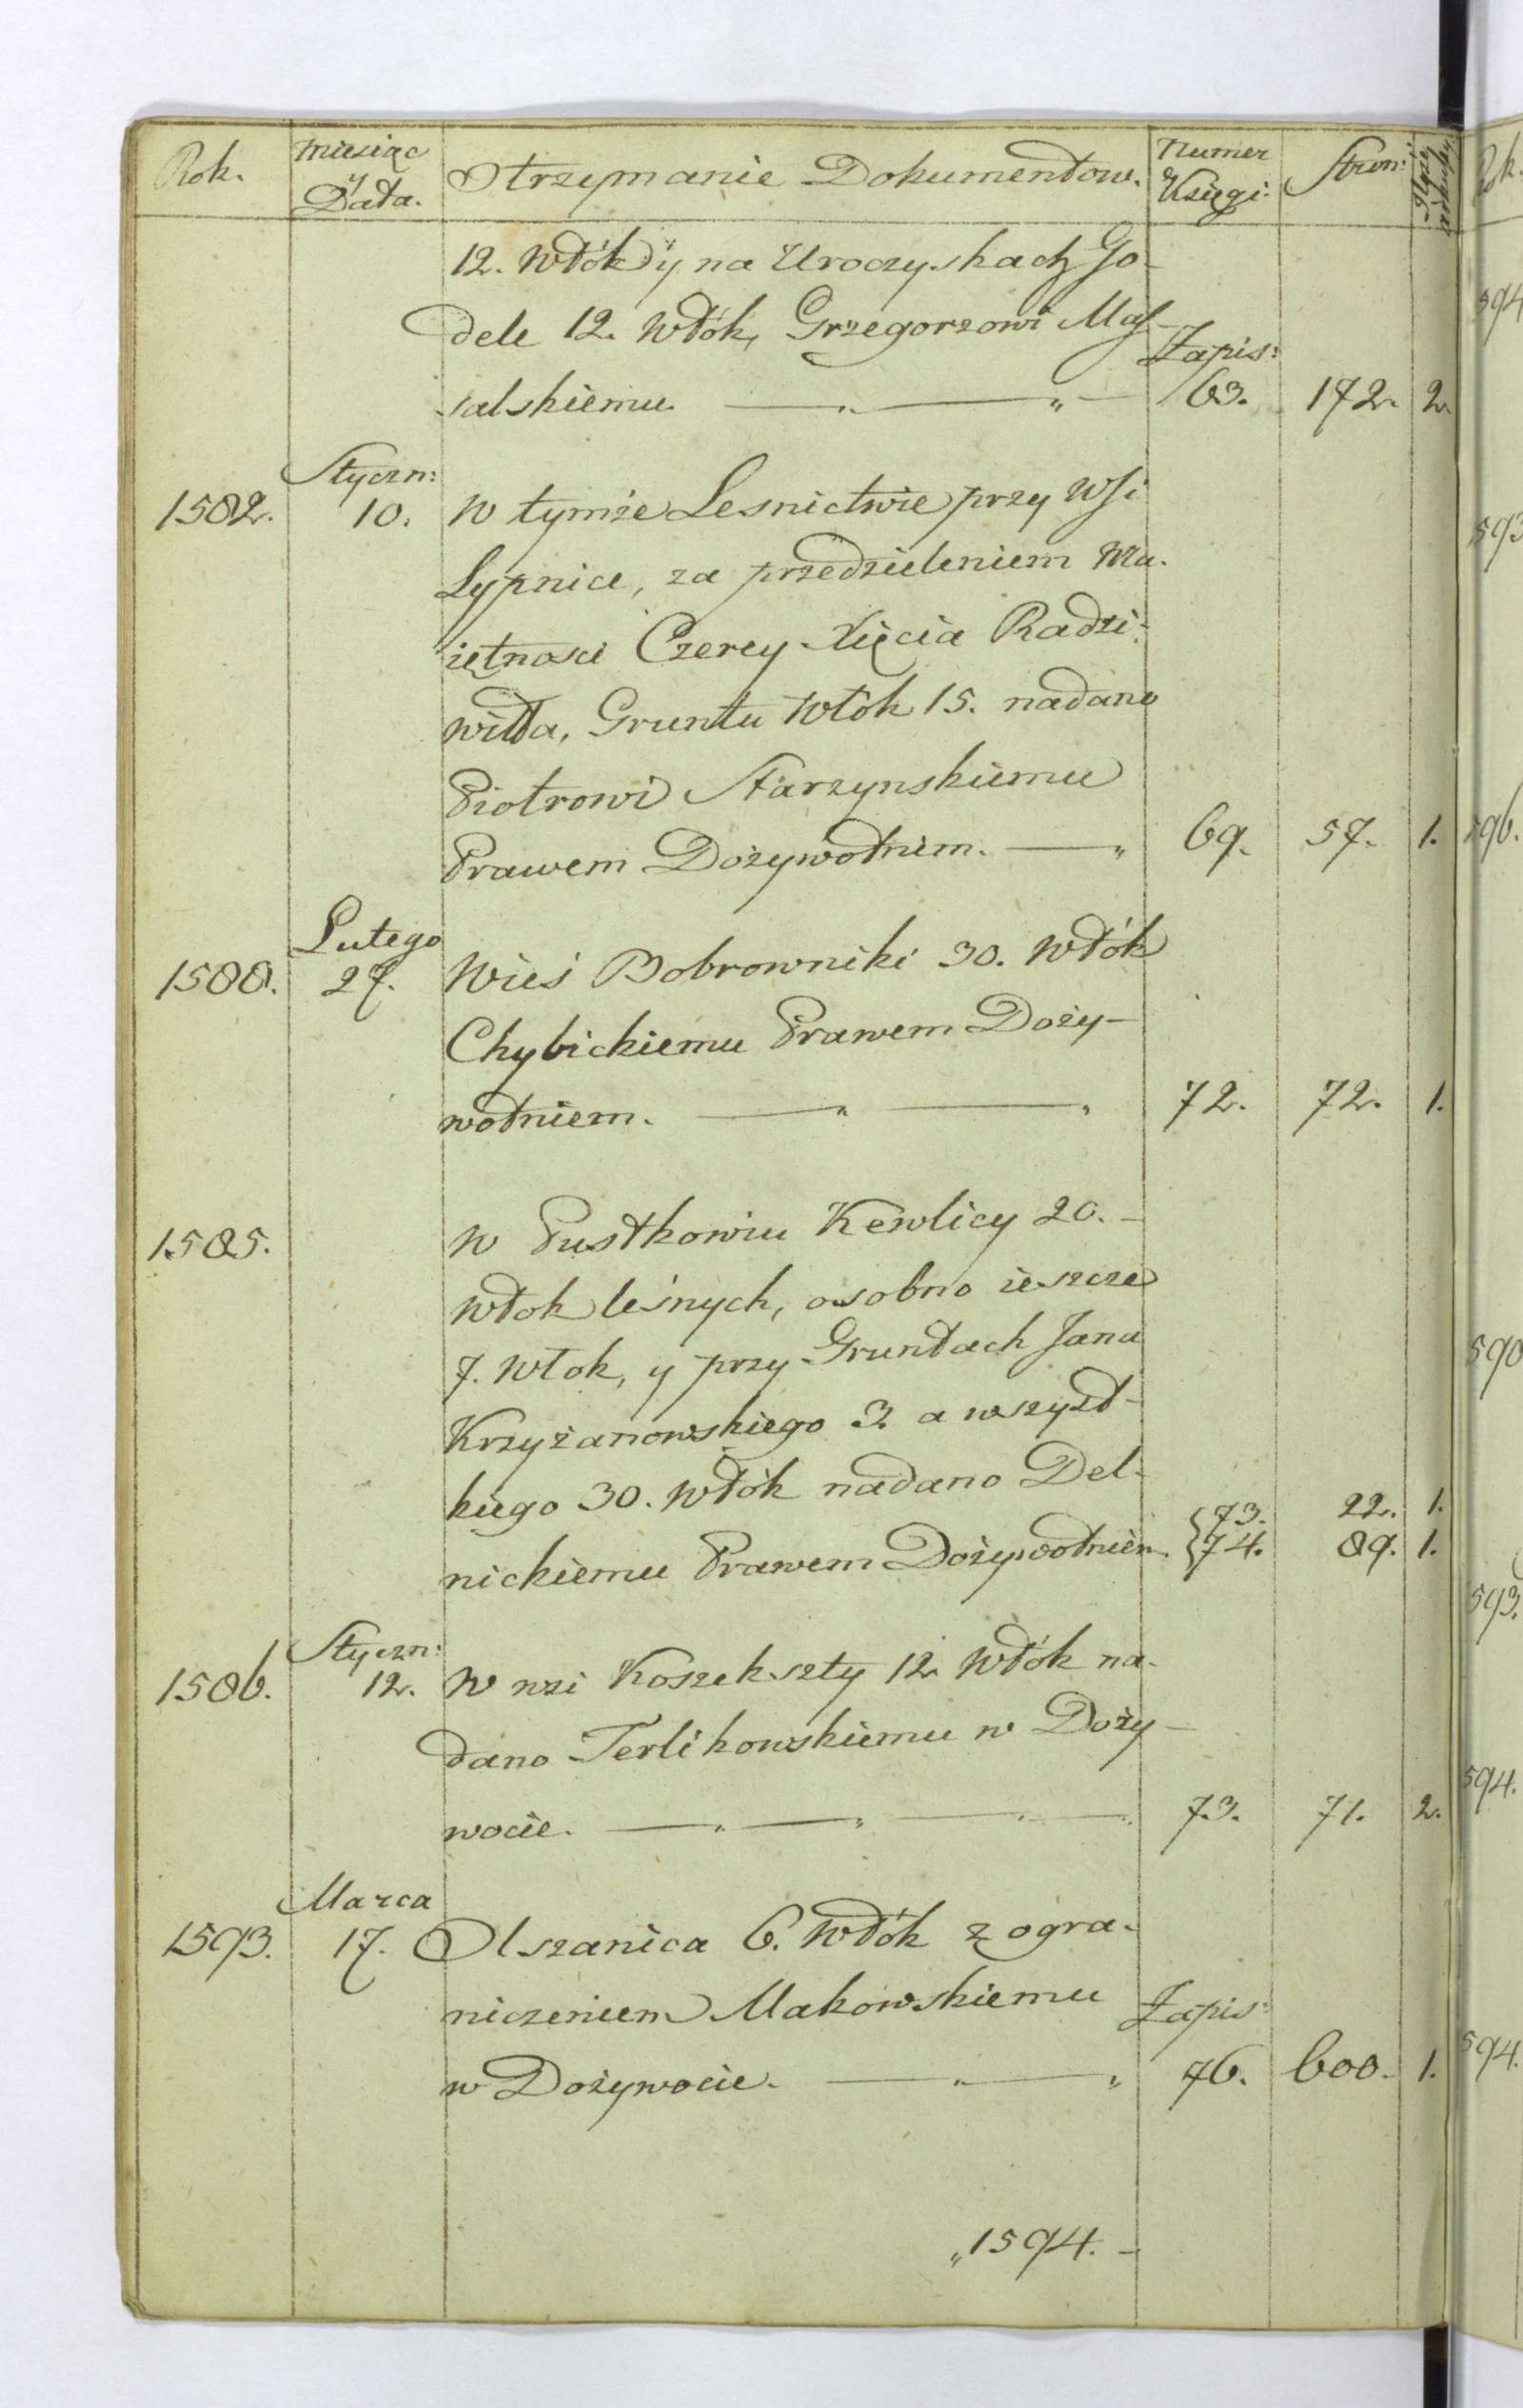 Rok. Miesiąc y Data. Otrzymanie Dokumentow. Numer Księgi: Stron:
12. Włók y na Uroczyskach Go-
dele 12. Włók, Grzegorzowi Mas-
salskiemu. Zapis: 63. 172. 2.
1582. Styczn: 10. W tymże Lesnictwie przy Wsi
Lypnice, za przedzieleniem Ma-
iętnosci Czerey Xięcia Radzi-
wiłła, Gruntu Włók 15. nadano
Piotrowi Starzynskiemu
Prawem Dożywotnim. 69. 57. 1.
1588. Lutego 27. Wieś Bobrowniki 30. Włók
Chybickiemu Prawem Doży-
wotniem. 72. 72. 1.
1585. W Pustkowiu Kewlicy 20.
Włok leśnych, osobno ieszcze
7. Włok, y przy Gruntach Jana
Krzyżanowskiego 3. a wszyst-
kiego 30. Włók nadano Del-
73. 22. 1.
nickiemu Prawem Dożywotniem. 74. 89. 1.
1586. Styczn: 12. W wsi Koszekszty 12. Włók na-
dano Terlikowskiemu w Doży-
wocie. 73. 71. 2.
1593. Marca 17. Olszanica 6. Włók z ogra-
niczeniem Makowskiemu Zapis:
w Dożywocie. 76. 600. 1.
1594.